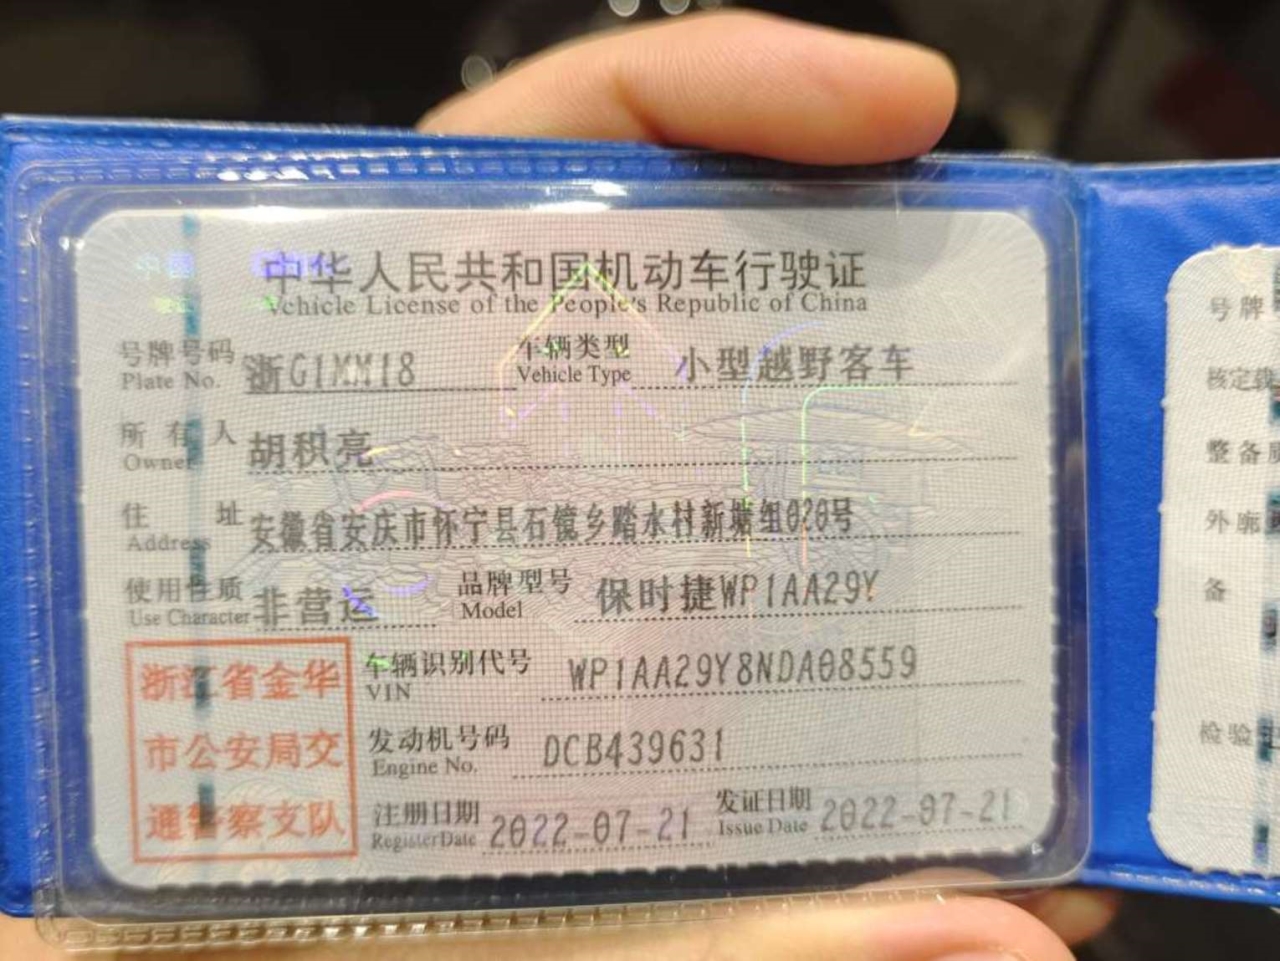 中华人民共和国机动车行驶证
Vehicle License of the People's Republic of China
号牌号码 浙G1MM18 车辆类型 小型越野客车
Plate No. Vehicle Type
所有人 胡积亮
Owner
住址 安徽省安庆市怀宁县石镜乡踏水村新塘组020号
Address
使用性质 非营运 品牌型号 保时捷WP1AA29Y
Use Character Model
浙江省金华
市公安局交
通警察支队
车辆识别代号 WP1AA29Y8NDA08559
VIN
发动机号码 DCB439631
Engine No.
注册日期 2022-07-21 发证日期 2022-07-21
Register Date Issue Date
号牌
核定载
整备质
外廓
备
检验